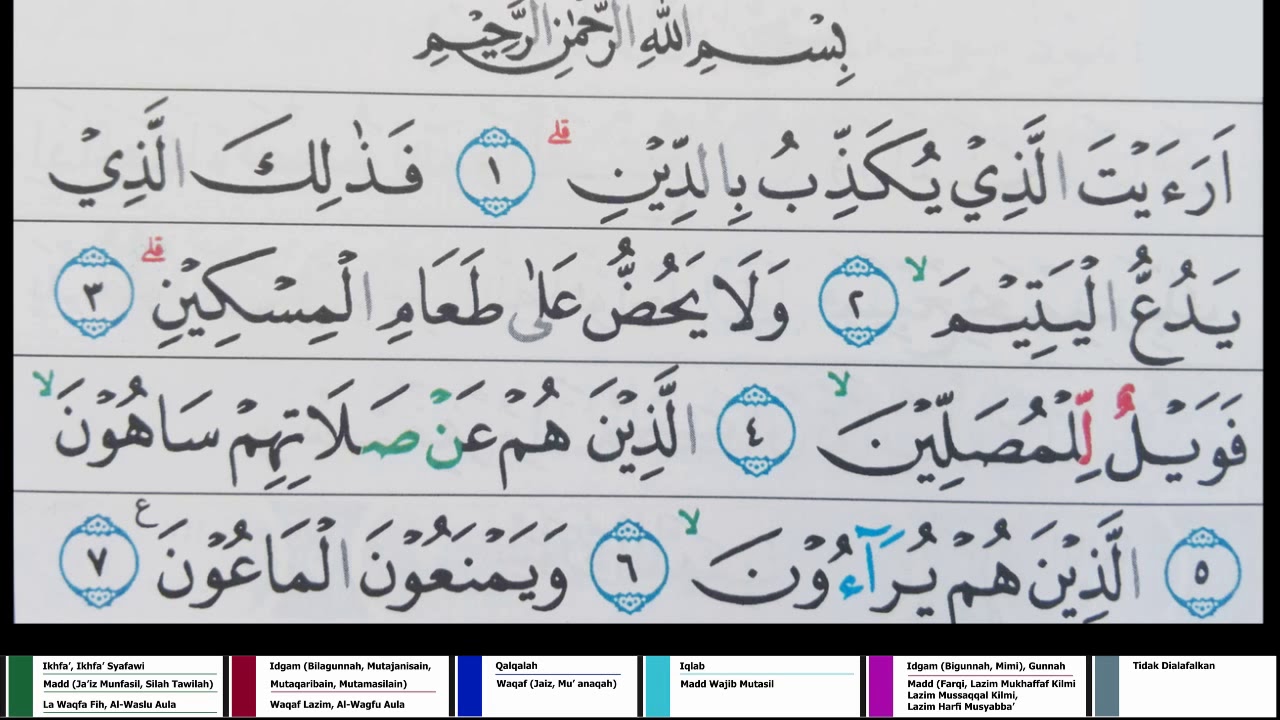 بِسْمِ اللّٰهِ الرَّحْمٰنِ الرَّحِيْمِ
اَرَءَيْتَ الَّذِيْ يُكَذِّبُ بِالدِّيْنِ ۗ ١ فَذٰلِكَ الَّذِيْ
يَدُعُّ الْيَتِيْمَ ۙ ٢ وَلَا يَحُضُّ عَلٰى طَعَامِ الْمِسْكِيْنِ ۗ ٣
فَوَيْلٌ لِّلْمُصَلِّيْنَ ۙ ٤ الَّذِيْنَ هُمْ عَنْ صَلَاتِهِمْ سَاهُوْنَ ۙ
٥ الَّذِيْنَ هُمْ يُرَآءُوْنَ ۙ ٦ وَيَمْنَعُوْنَ الْمَاعُوْنَ ࣖ ٧
Ikhfa', Ikhfa' Syafawi
Madd (Ja'iz Munfasil, Silah Tawilah)
La Waqfa Fih, Al-Waslu Aula
Idgam (Bilagunnah, Mutajanisain,
Mutaqaribain, Mutamasilain)
Waqaf Lazim, Al-Wagfu Aula
Qalqalah
Waqaf (Jaiz, Mu' anaqah)
Iqlab
Madd Wajib Mutasil
Idgam (Bigunnah, Mimi), Gunnah
Madd (Farqi, Lazim Mukhaffaf Kilmi
Lazim Mussaqqal Kilmi,
Lazim Harfi Musyabba'
Tidak Dialafalkan